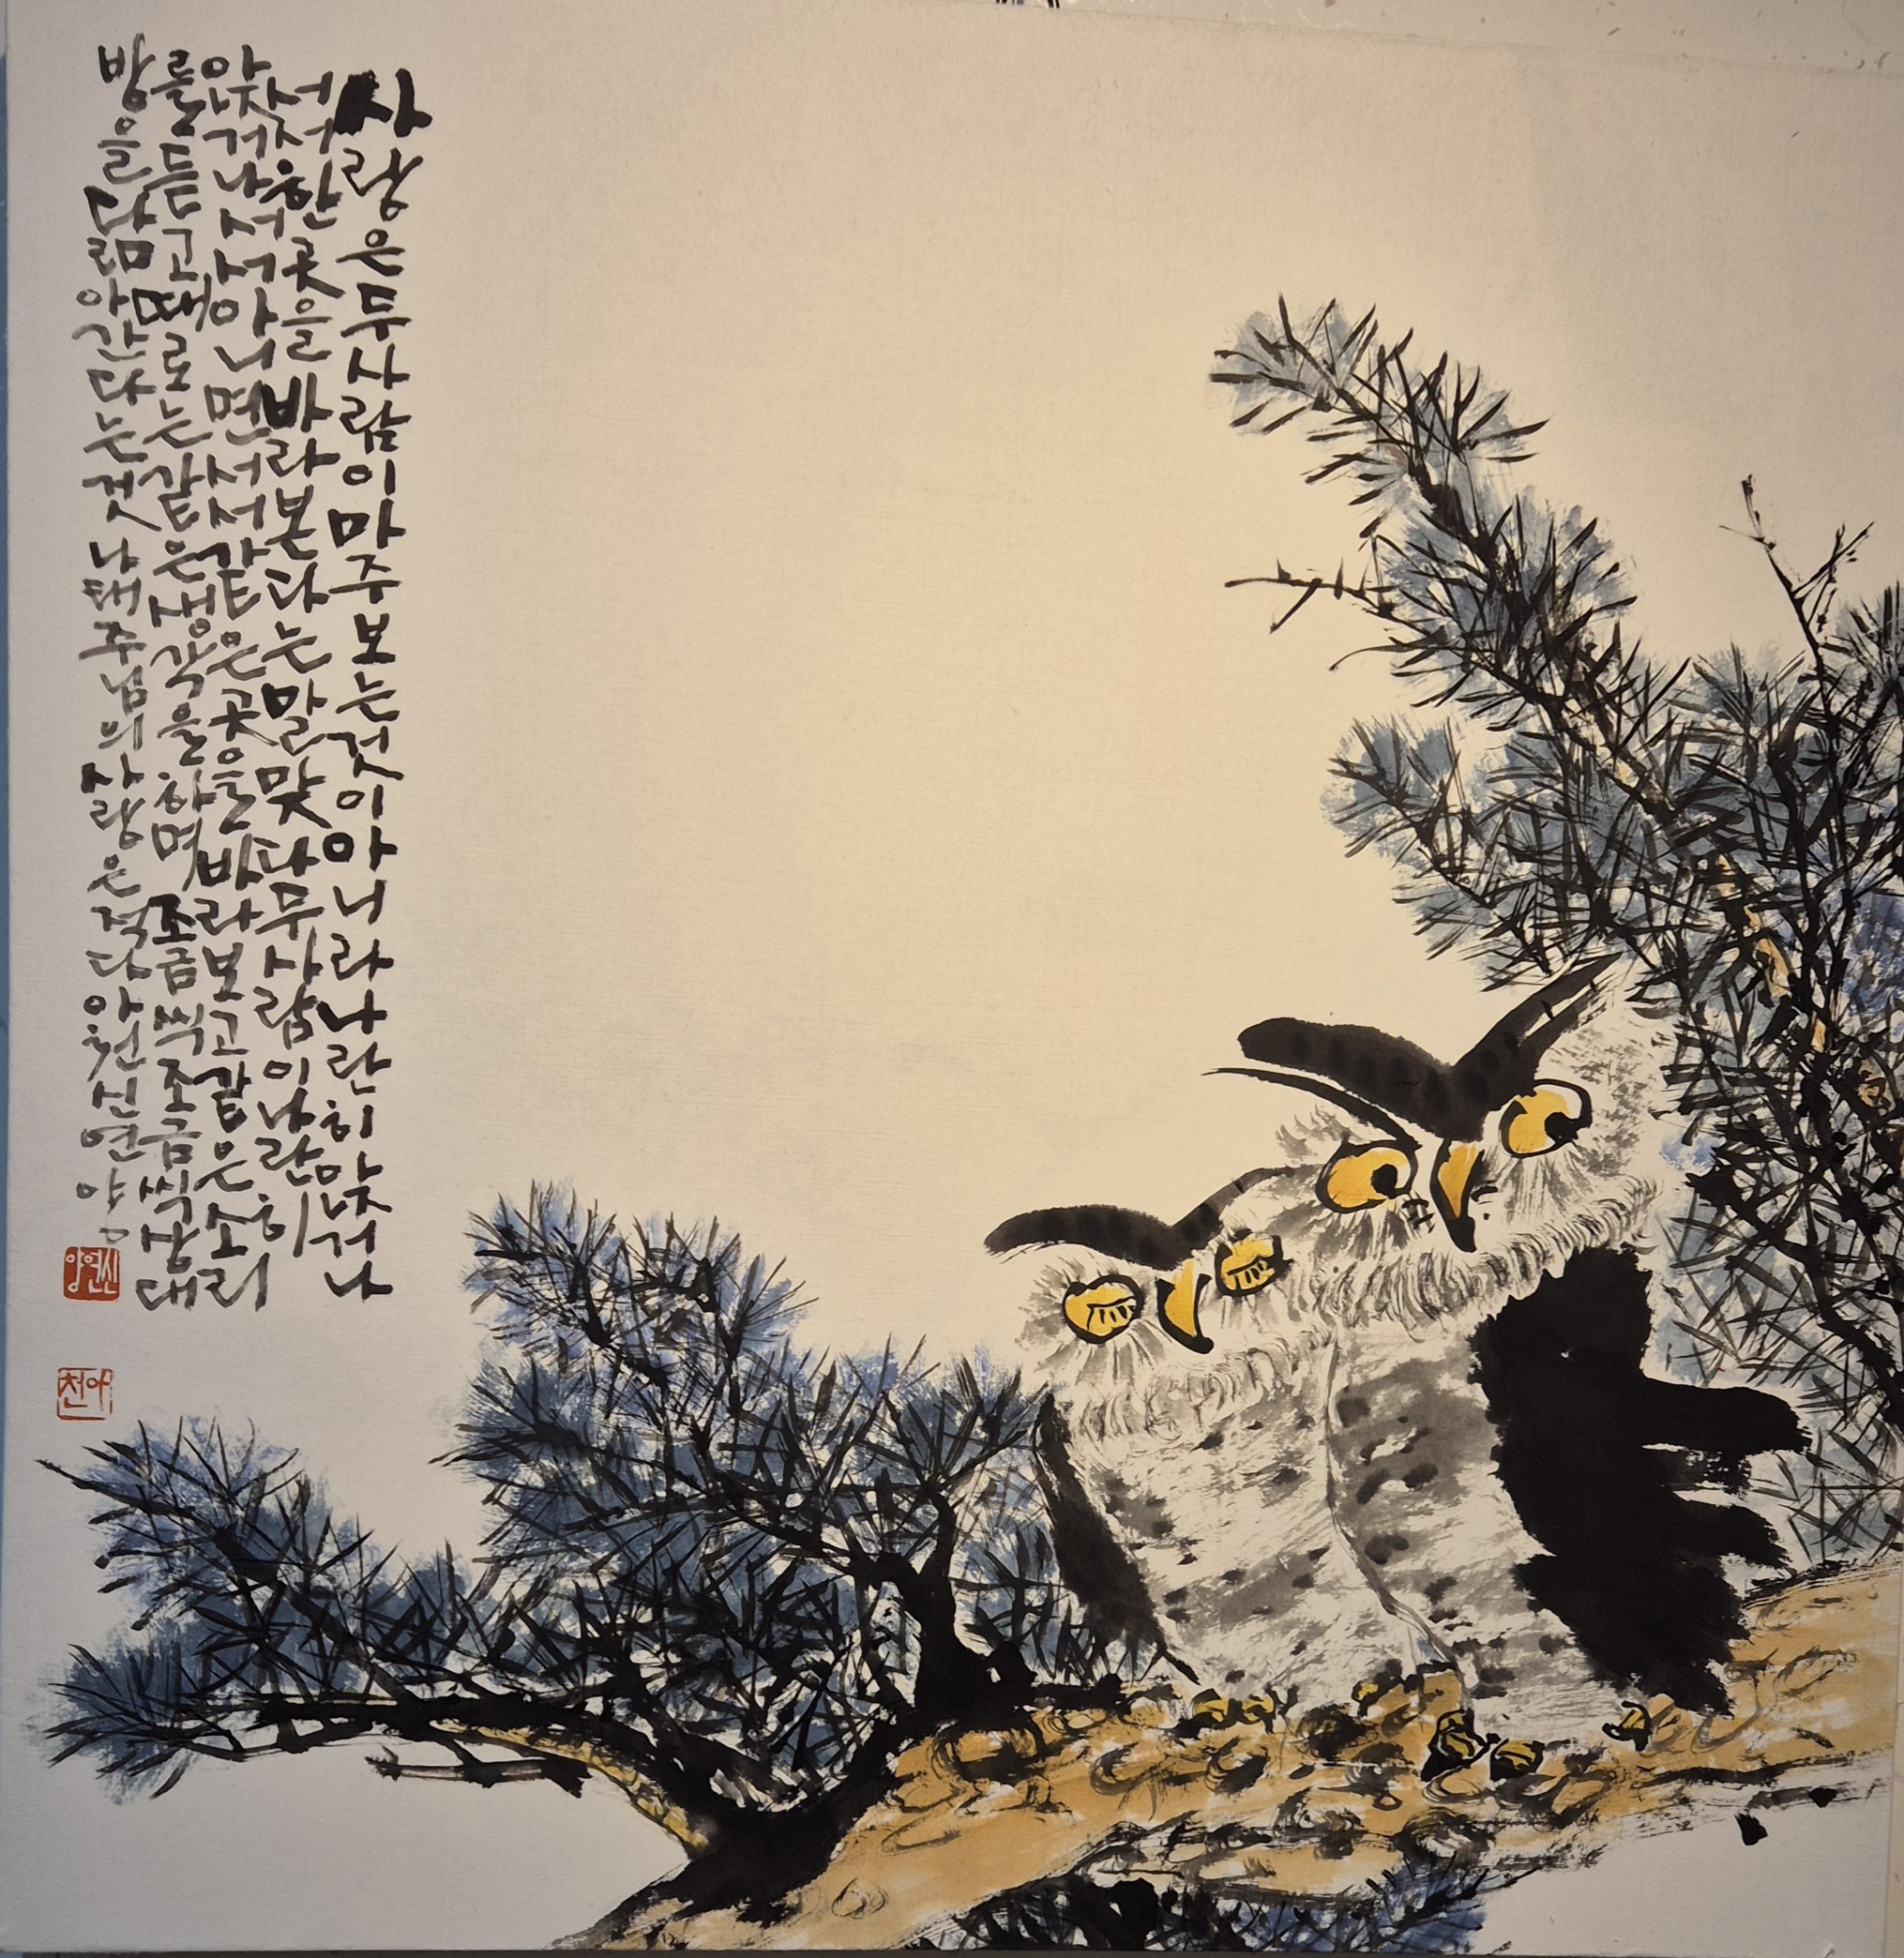 사랑은두사람이마주보는것이아니라나란히앉거나
서서한곳을바라본다는말맞다두사람이나란히
앉거나서서아니면서서같은곳을바라보고같은소리
를듣고때로는같은생각을하며조금씩조금씩상대
방을닮아간다는것나태주님의사랑은적다아천신연양
신연양
아천